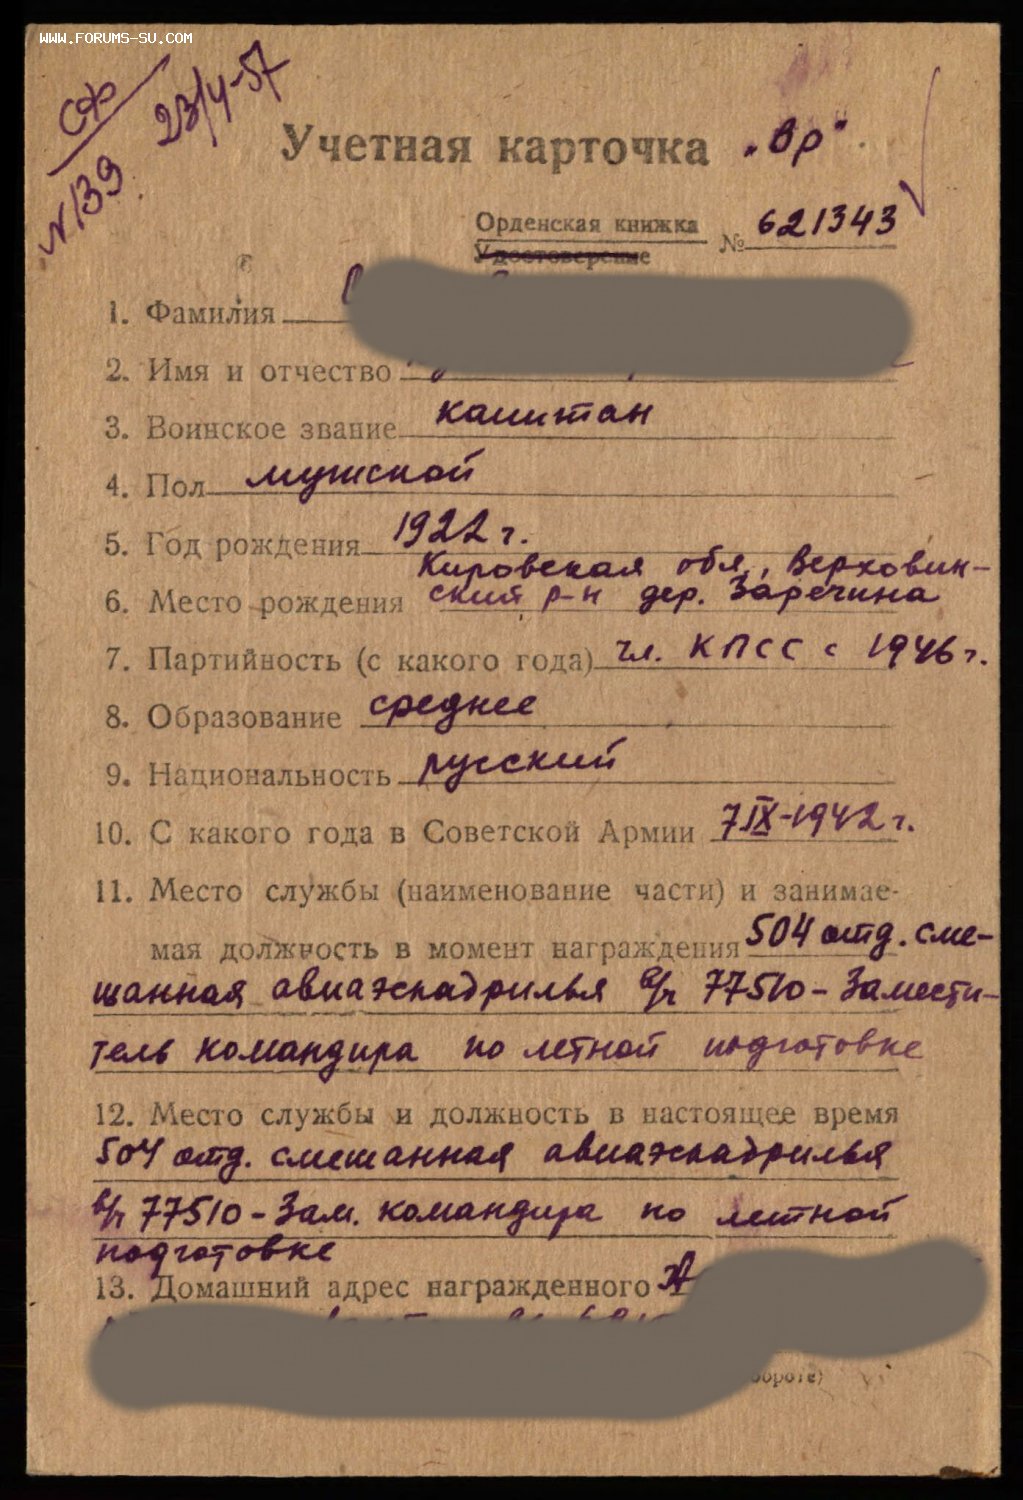 WWW.FORUMS-SU.COM
СФ
№139
23/4-57
Учетная карточка „Вр“
Орденская книжка
Удостоверение
№ 621343
1. Фамилия
2. Имя и отчество
3. Воинское звание капитан
4. Пол мужской
5. Год рождения 1922 г.
Кировская обл., Верховин-
6. Место рождения ский р-н дер. Заречина
7. Партийность (с какого года) чл. КПСС с 1946 г.
8. Образование среднее
9. Национальность русский
10. С какого года в Советской Армии 7 IX-1942 г.
11. Место службы (наименование части) и занимае-
мая должность в момент награждения 504 отд. сме-
шанная авиаэскадрилья в/ч 77510 - Замести-
тель командира по летной подготовке
12. Место службы и должность в настоящее время
504 отд. смешанная авиаэскадрилья
в/ч 77510 - Зам. командира по летной
подготовке
13. Домашний адрес награжденного